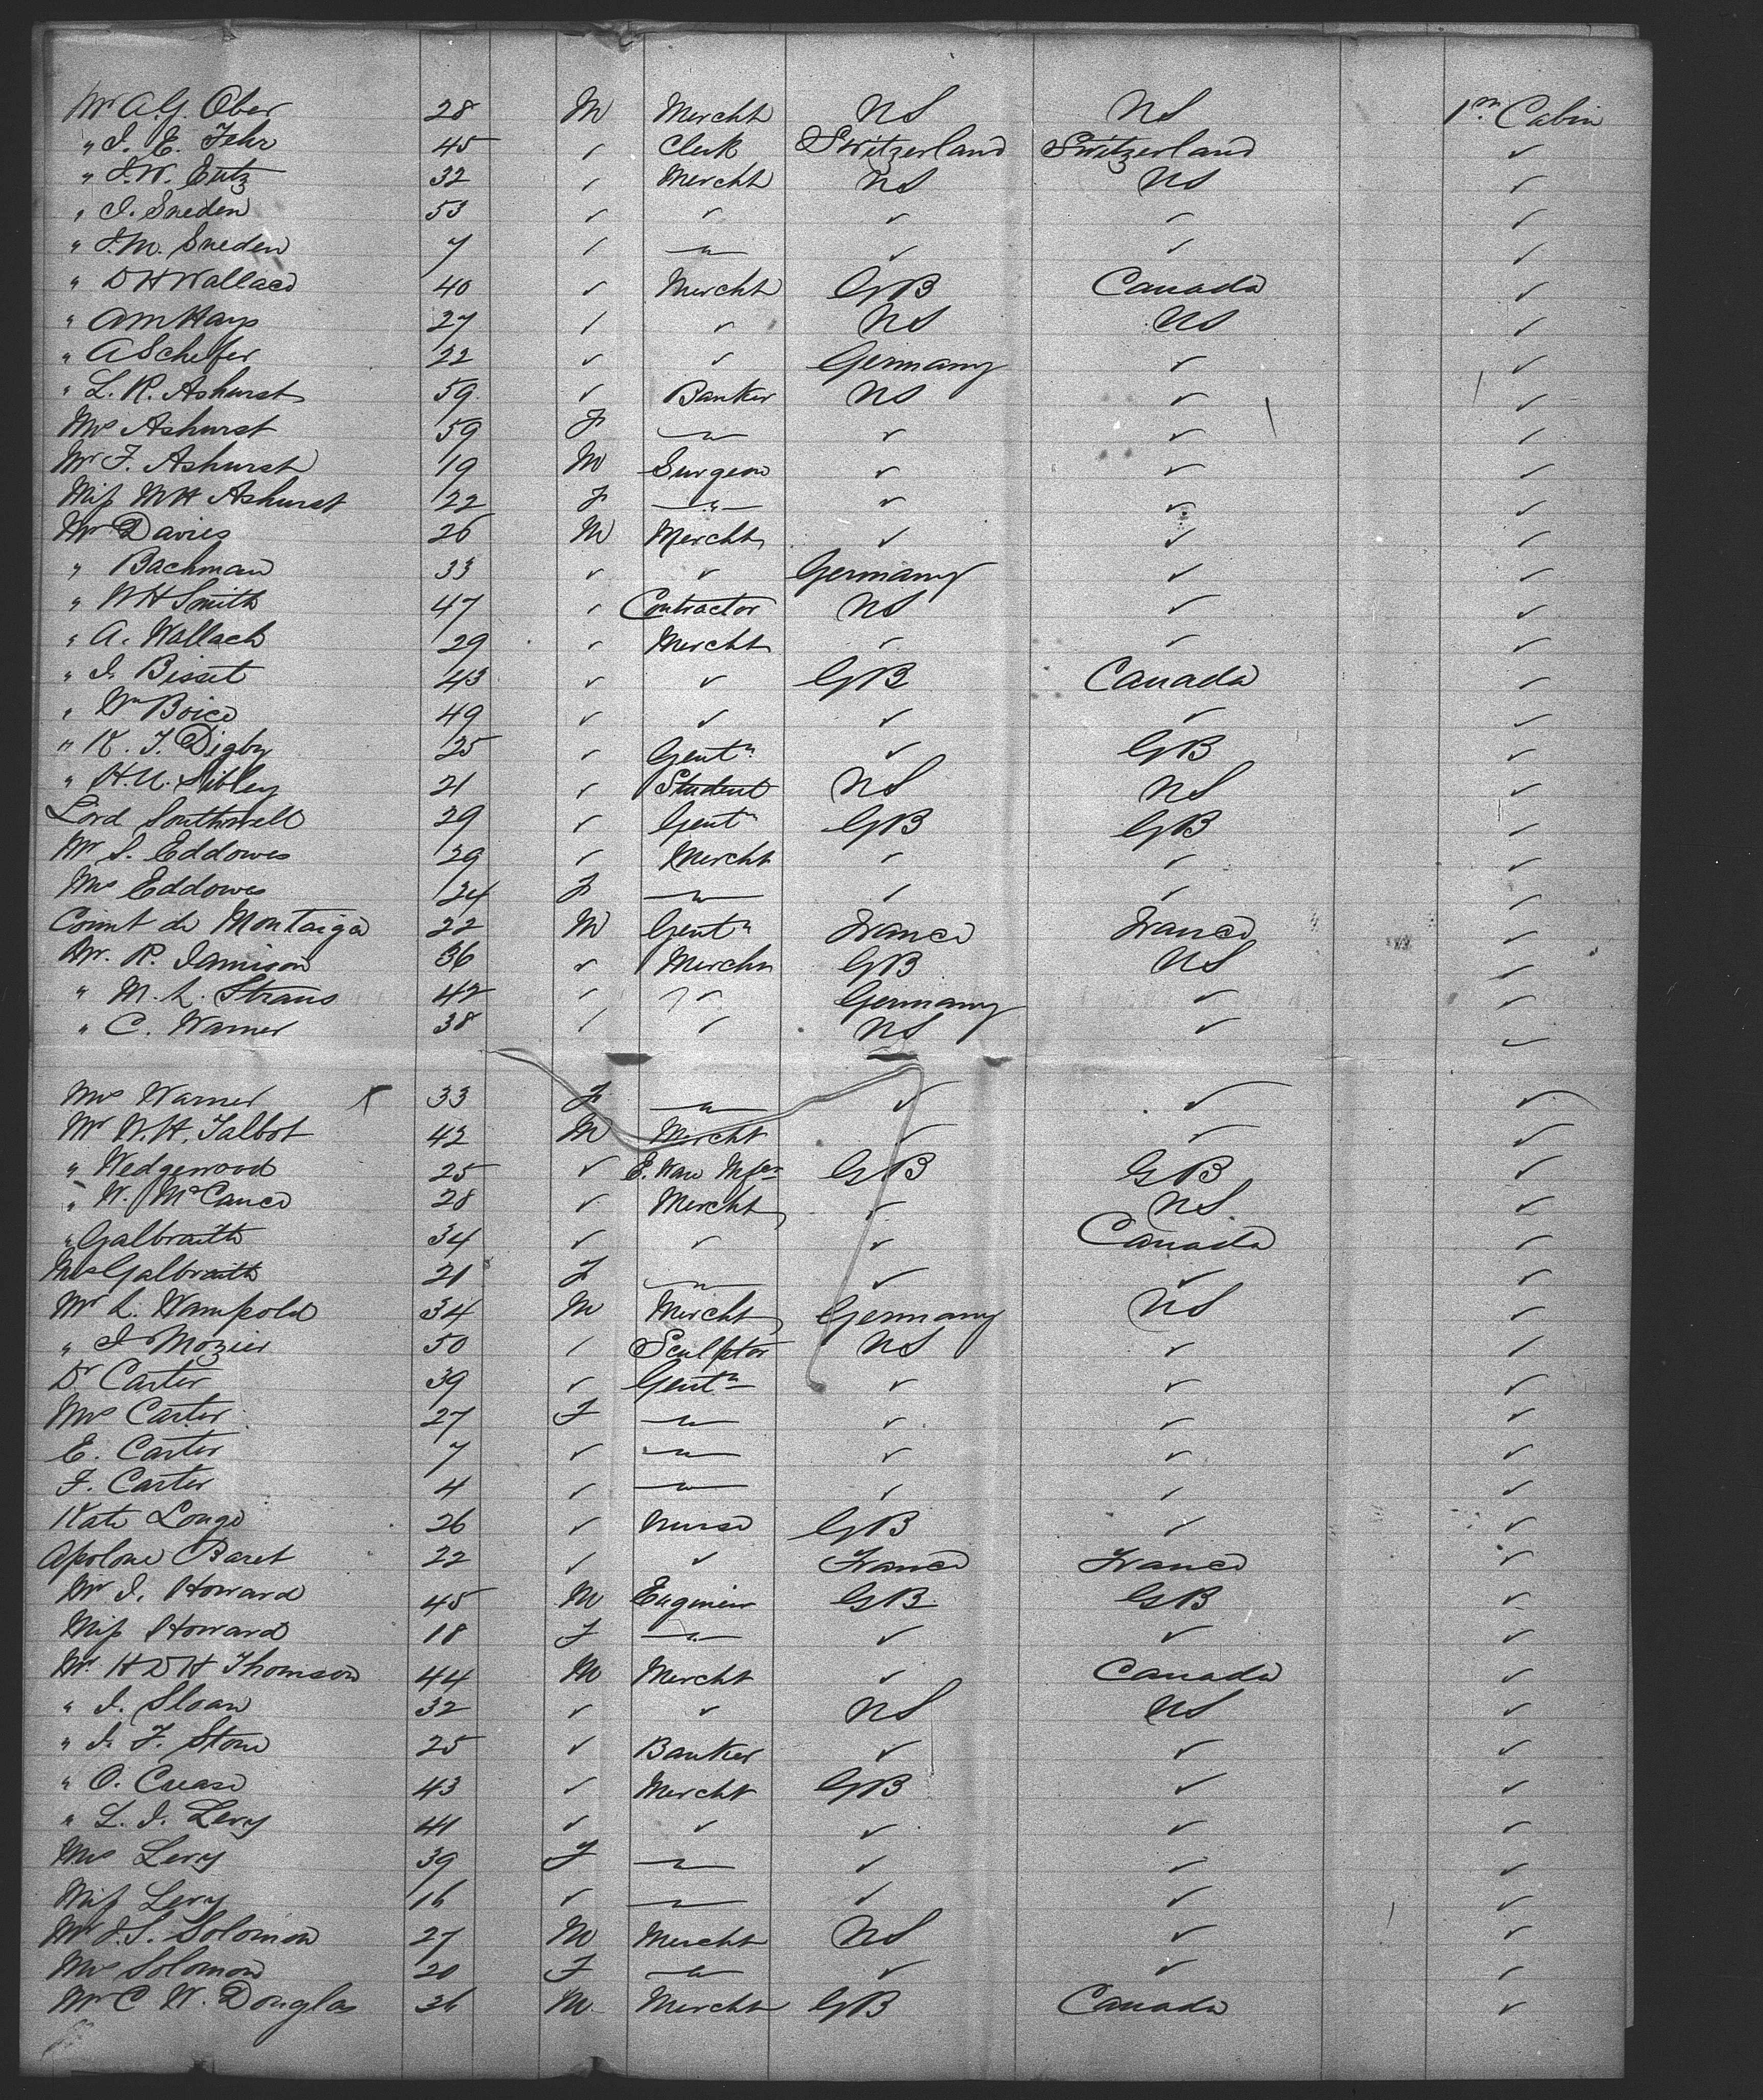 Mr A.G. Ober 28 M Mercht US US 1st Cabin
" J. E. Fehr 45 ✓ Clerk Switzerland Switzerland ✓
" F.W. Eutz 32 ✓ Mercht US US ✓
" J. Sneden 53 ✓ ✓ ✓ ✓ ✓
" F.M. Sneden 7 ✓ —"— ✓ ✓ ✓
" D H Wallace 40 ✓ Mercht GB Canada ✓
" A M Hays 27 ✓ ✓ US US ✓
" A Schefer 22 ✓ ✓ Germany ✓ ✓
" L. R. Ashurst 59 ✓ Banker US ✓ ✓
Mrs Ashurst 59 F —"— ✓ ✓ ✓
Mr F. Ashurst 19 M Surgeon ✓ ✓ ✓
Miss M H Ashurst 22 F —"— ✓ ✓ ✓
Mr Davies 26 M Mercht ✓ ✓ ✓
" Bachman 33 ✓ ✓ Germany ✓ ✓
" W H Smith 47 ✓ Contractor US ✓ ✓
" A. Wallach 29 ✓ Mercht ✓ ✓ ✓
" J. Bisset 43 ✓ ✓ GB Canada ✓
" Wm Boice 49 ✓ ✓ ✓ ✓ ✓
" K. T. Digby 25 ✓ Gentn ✓ GB ✓
" H.U. Sibley 21 ✓ Student US US ✓
Lord Southwell 29 ✓ Gentn GB GB ✓
Mr S. Eddowes 29 ✓ Mercht ✓ ✓ ✓
Mrs Eddowes 24 F —"— ✓ ✓ ✓
Count de Montaiga 22 M Gentn France France ✓
Mr. R. Jamison 36 ✓ Mercht GB US ✓
" M. L. Straus 42 ✓ ✓ Germany ✓ ✓
" C. Warner 38 ✓ ✓ US ✓ ✓
Mrs Warner 33 F —"— ✓ ✓ ✓
Mr W.H. Talbot 42 M Mercht ✓ ✓ ✓
" Wedgewood 25 ✓ E. Ware Mfer GB GB ✓
" W. McCance 28 ✓ Mercht ✓ US ✓
" Galbraith 34 ✓ ✓ ✓ Canada ✓
Mrs Galbraith 21 F —"— ✓ ✓ ✓
Mr L. Wampold 34 M Mercht Germany US ✓
" J Mozier 50 ✓ Sculptor US ✓ ✓
Dr Carter 39 ✓ Gentn ✓ ✓ ✓
Mrs Carter 27 F —"— ✓ ✓ ✓
E. Carter 7 ✓ —"— ✓ ✓ ✓
F. Carter 4 ✓ —"— ✓ ✓ ✓
Kate Longe 26 ✓ Nurse GB ✓ ✓
Apolone Baret 22 ✓ ✓ France France ✓
Mr J. Howard 45 M Engineer GB GB ✓
Miss Howard 18 F —"— ✓ ✓ ✓
Mr. H D H Thomson 44 M Mercht ✓ Canada ✓
" J. Sloan 32 ✓ ✓ US US ✓
" J. F. Stone 25 ✓ Banker ✓ ✓ ✓
" O. Crease 43 ✓ Mercht GB ✓ ✓
" L. J. Levy 41 ✓ ✓ ✓ ✓ ✓
Mrs Levy 39 F —"— ✓ ✓ ✓
Miss Levy 16 ✓ —"— ✓ ✓ ✓
Mr J.S. Solomon 27 M Mercht US ✓ ✓
Mrs Solomon 20 F —"— ✓ ✓ ✓
Mr C W. Douglas 36 M Mercht GB Canada ✓